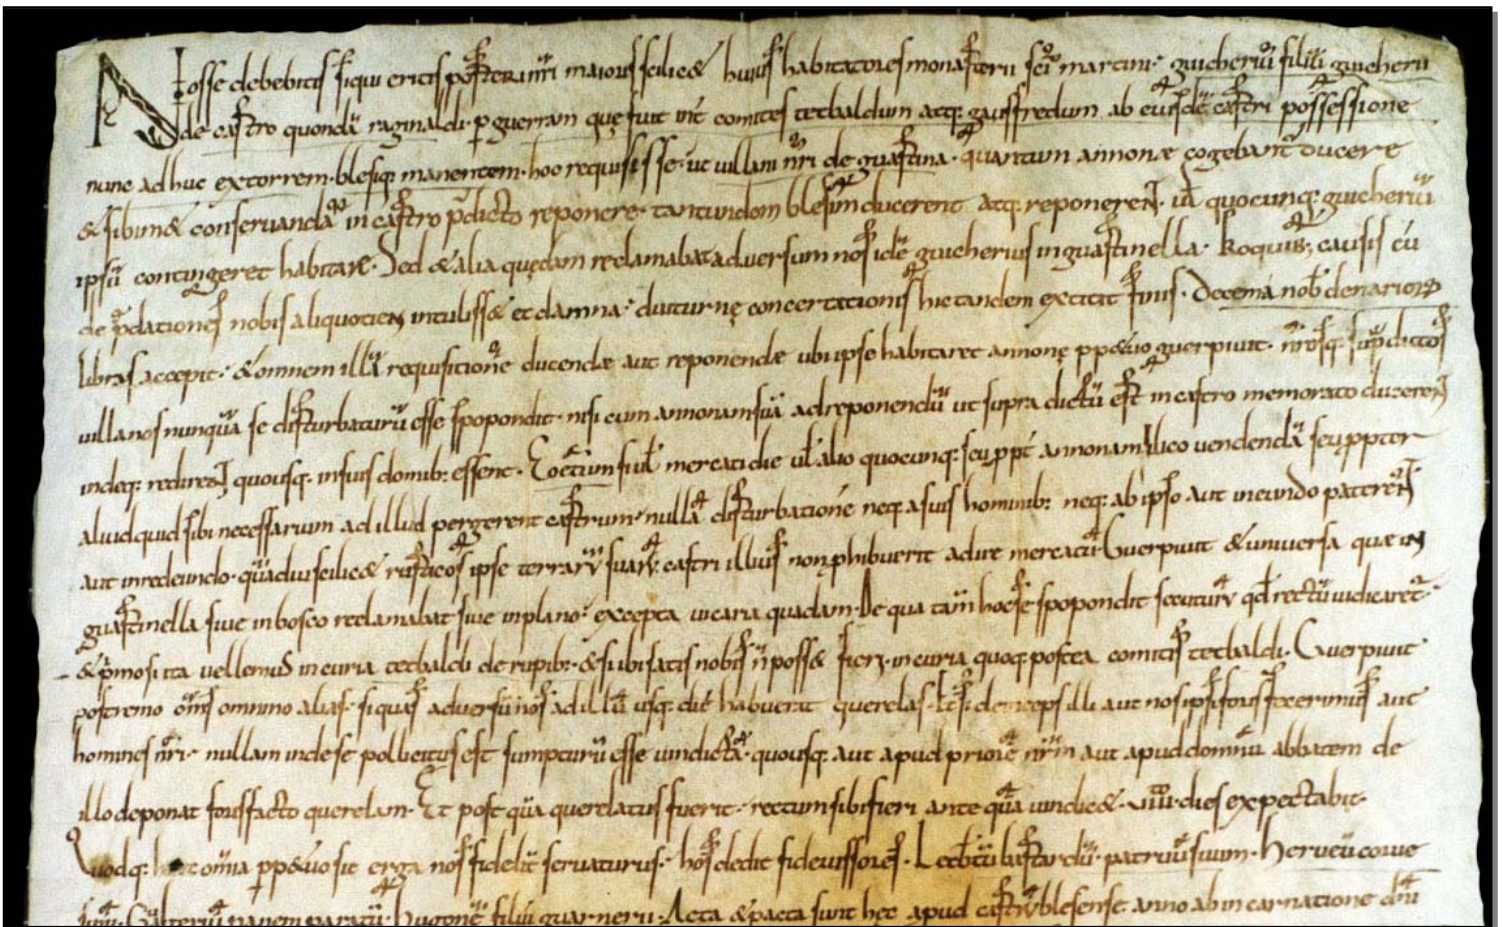 Nosse debebitis siqui eritis posteri nr̄i maioris scilic& huius habitatores monasterii sc̄i martini· guicheriū filiū guicherii
de castro quondā raginaldi· p̱ guerram quę fuit int́ comites tetbaldum atq: gauffredum ab eiusdē castri possessione
nunc adhuc extorrem· blesiq: manentem· hoc requisisse· ut uillani nr̄i de guastina· quantum annonæ cogebant̄ ducere
& sibim& conseruandā in castro p̄dicto reponere· tantundem blesim ducerent atq: reponerent· ut̄ quocunq: guicheriū
ipsū contingeret habitare· Sed & alia quędam reclamabat aduersum nos idē guicherius in guastinella· quib; causis cū
de p̄dationes nobis aliquotiens intuliss& et damna· diuturnę concertationis hic tandem extitit finis· Decem a nob̄ denariorꝝ
libras accepit· & omnem illā requisitionē ducendæ aut reponendæ ubi ipse habitaret annonę pp&uo guerpiuit· nr̄osq: sup̄dictos
uillanos nunquā se disturbaturū esse spopondit· nisi cum annonam suā ad reponendū ut supra dictū est in castro memorato ducerent
indeq: redirent quousq: in suis domib: essent· & cum mercati die ut̄ alio quocunq: seu ppt́ annonam ilico uendendā seu ppter
aliud quid sibi necessarium ad illud pergerent castrum· nullā disturbationē neq: a suis hominib: neq: ab ipso aut in eundo paterent̄
aut in redeundo· quādiu scilic& rusticos ipse terrarū suarū castri illius non phibuerit adire mercatū· Guerpiuit & uniuersa quæ in
guastinella siue in bosco reclamabat siue in plano· excepta uicaria quadam· De qua tam̄ hoc se spopondit secuturū qd̄ rectū iudicaret̄·
& p̄mo si ita uellemus in curia tetbaldi de rupib:· & si ibi satis nobis n̄ poss& fieri· in curia quoq: postea comitis tetbaldi· Guerpiuit
postremo om̄s omnino alias· siquas aduersū nos ad illū usq: dié habuerat querelas· & si deinceps illi aut nos ipsi forsfecerimus aut
homines nr̄i· nullam inde se pollicitus est sumpturū esse uindictā· quousq: aut apud priorē nr̄m aut apud domnū abbatem de
illo deponat forsfacto querelam· Et post quā querelatus fuerit· rectum sibi fieri ante quā uindic& ·xiiii· dies expectabit·
Quodq: hæc om̄ia pp&uo sit erga nos fidelit̄ seruaturus· hos dedit fideiussores· Letb̄tū bastardū· patruū suum· Herueū
Gualteriū panem paratū· hugonē filiū guarnerii· Acta & pacta sunt hęc apud castrū blesense anno ab incarnatione dn̄i